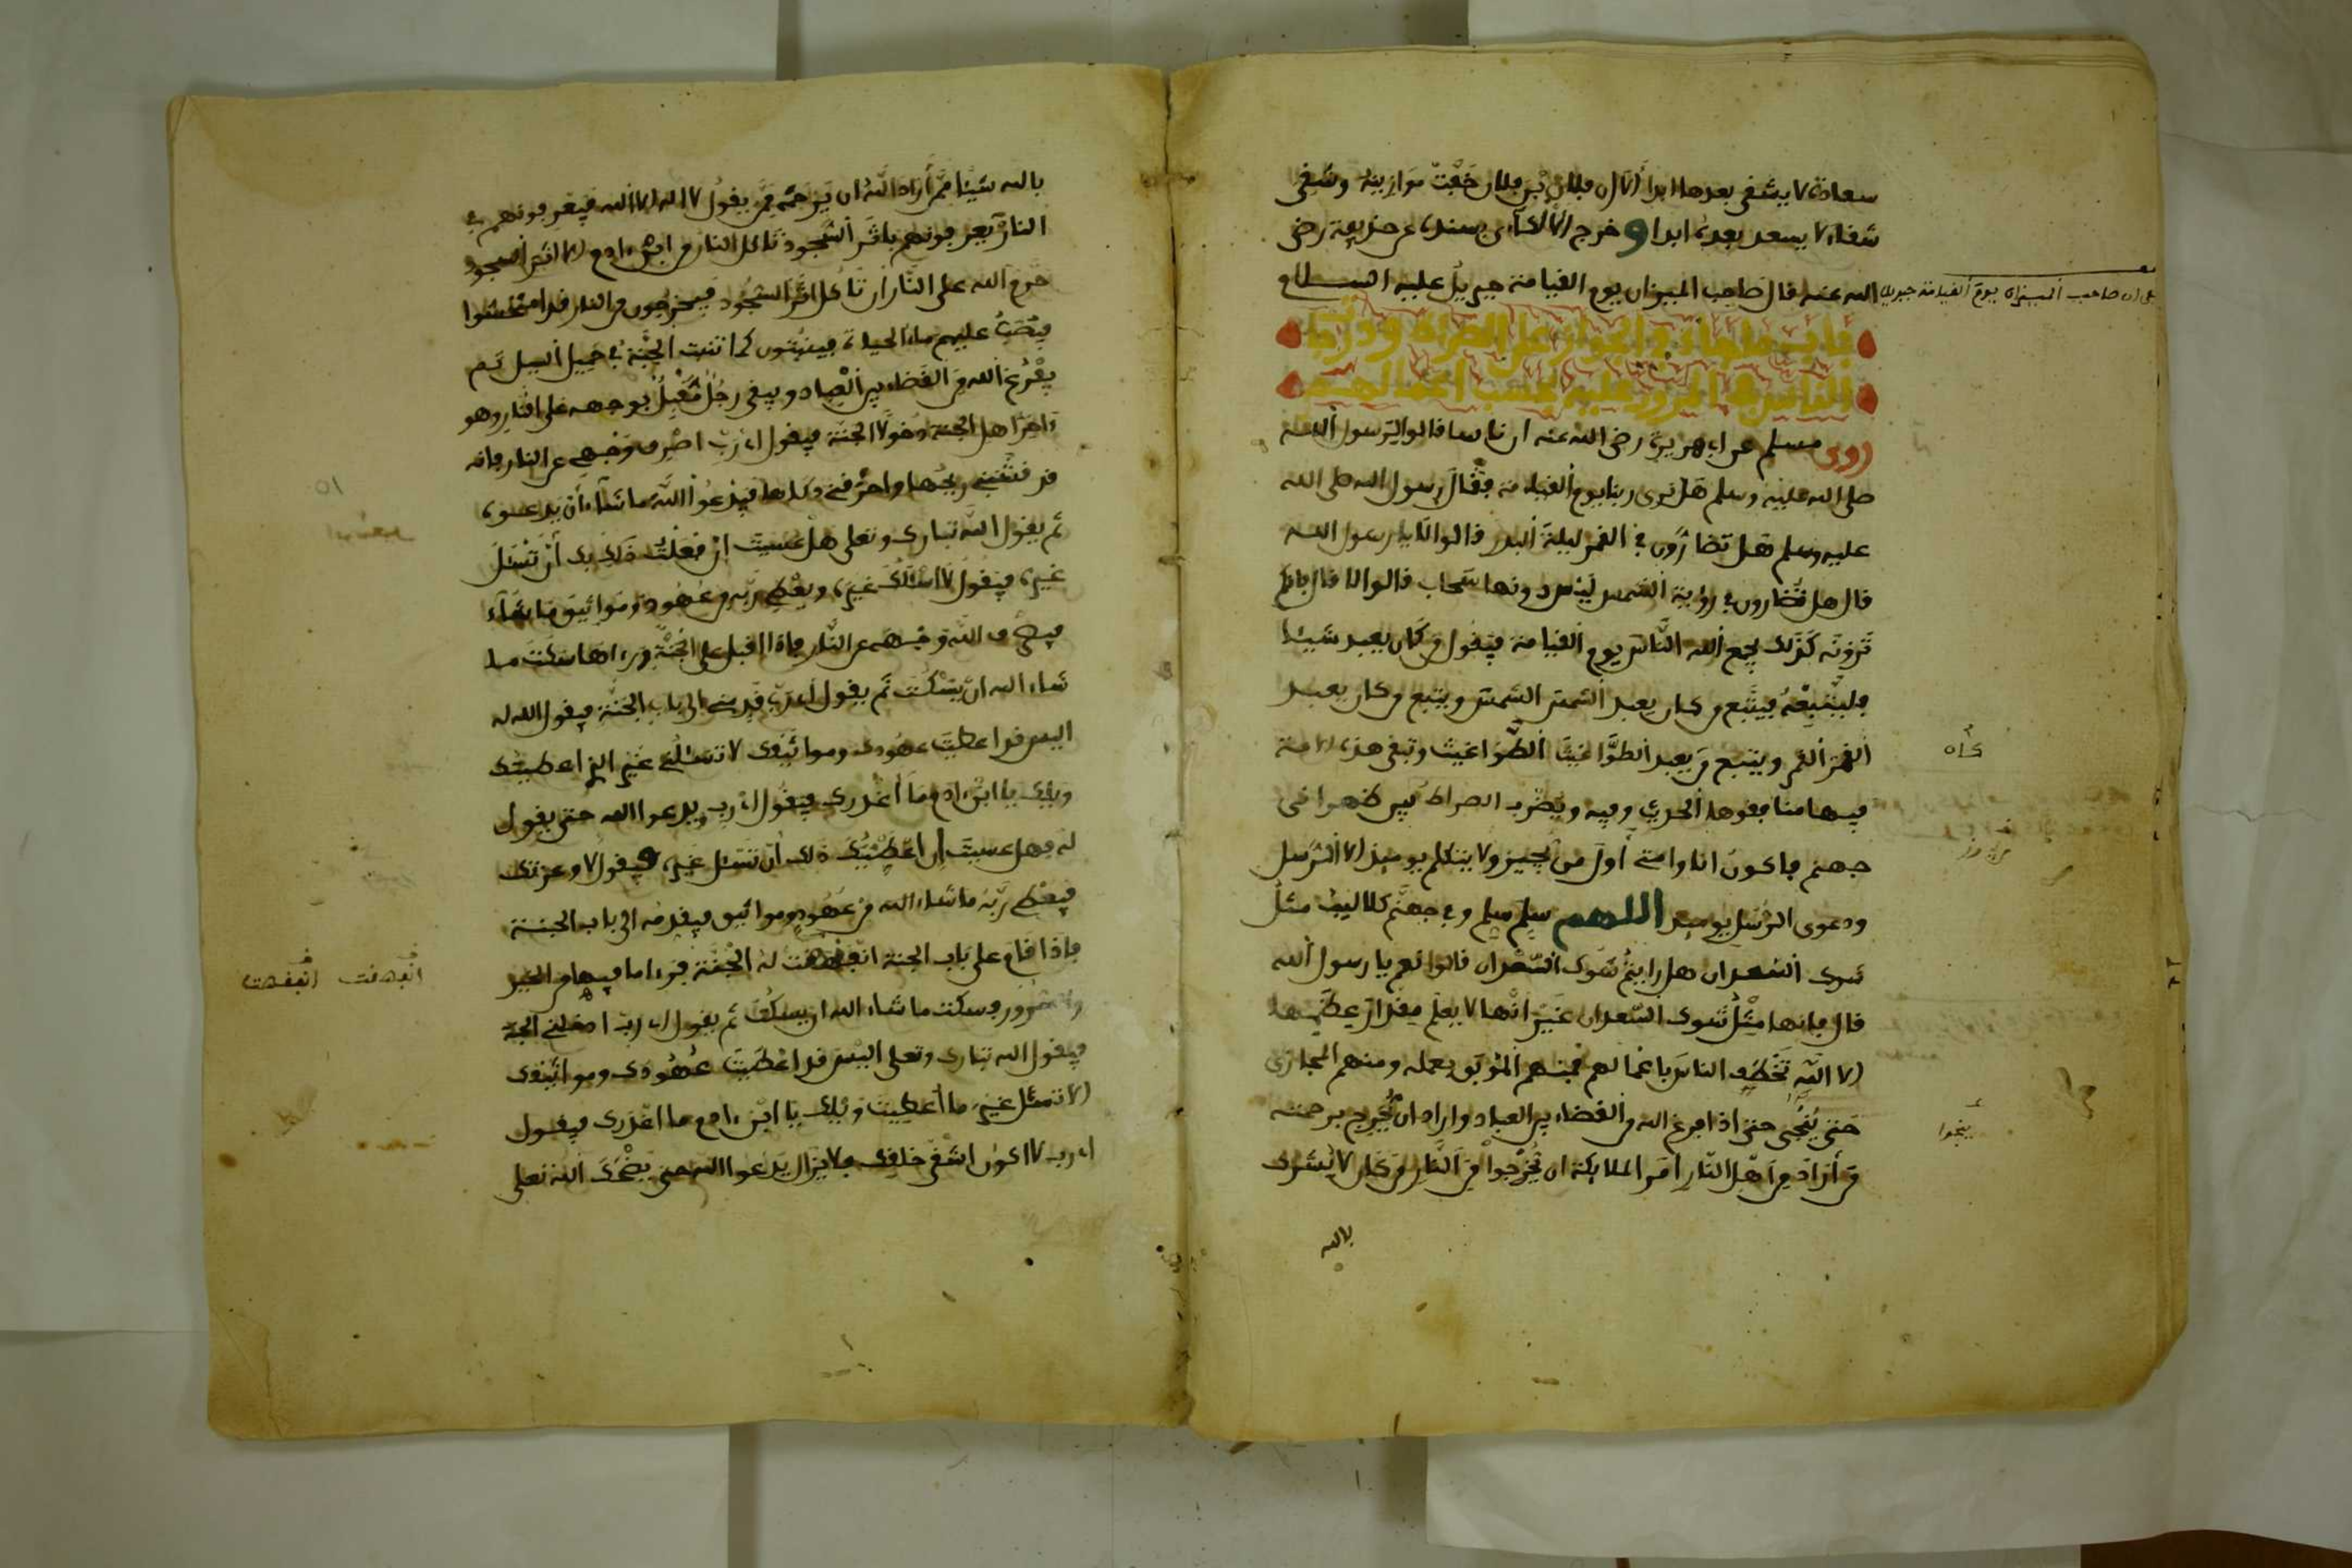 سعادة لا يشقى بعدها ابدا الا ان فلان بن فلان خفت موازينه وشقى
شقاء لا يسعد بعده ابدا وخرج اللالكاءى بسنده عن حذيفة رضى
الله عنه قال صاحب الميزان يوم القيامة جبريل عليه السلام
على ان صاحب الميزان يوم القيامة جبريل
باب ما جاء في الجواز على الصراط
الناس في المرور عليه بحسب اعمالهم
روى مسلم عن ابى هريرة رضى الله عنه ان ناسا قالوا لرسول الله
صلى الله عليه وسلم هل نرى ربنا يوم القيامة فقال رسول الله صلى الله
عليه وسلم هل تضارون في القمر ليلة البدر قالوا لا يا رسول الله
قال هل تضارون في رؤية الشمس ليس دونها سحاب قالوا لا قال فانكم
ترونه كذلك يجمع الله الناس يوم القيامة فيقول من كان يعبد شيئا
فليتبعه فيتبع من كان يعبد الشمس الشمس ويتبع من كان يعبد
القمر القمر ويتبع من يعبد الطواغيت الطواغيت وتبقى هذه الامة
كان
فيها منافقوها الحديث وفيه ويضرب الصراط بين ظهرانى
جهنم فاكون انا وامتى اول من يجيز ولا يتكلم يومئذ الا الرسل
ودعوى الرسل يومئذ اللهم سلم سلم وفى جهنم كلاليب مثل
شوك السعدان هل رايتم شوك السعدان قالوا نعم يا رسول الله
قال فانها مثل شوك السعدان غير انها لا يعلم مقدار عظمها
الا الله تخطف الناس باعمالهم فمنهم الموبق بعمله ومنهم المجازى
حتى ينجى حتى اذا فرغ الله من القضاء بين العباد واراد ان يخرج برحمته
ينجوا
من أراد من اهل النار امر الملايكة ان يخرجوا من النار من كان لا يشرك
بالله
بالله شيئا ممن أراد الله ان يرحمه ممن يقول لا اله الا الله فيعرفونهم في
النار يعرفونهم باثر السجود تاكل النار من ابن ءادم الا اثر السجود
حرم الله على النار ان تاكل اثر السجود فيخرجون من النار قد امتحشوا
فيصب عليهم ماء الحياة فينبتون كما تنبت الحبة في حميل السيل ثم
يفرغ الله من القضاء بين العباد ويبقى رجل مقبل بوجهه على النار وهو
ءاخر اهل الجنة دخولا الجنة فيقول اى رب اصرف وجهى عن النار فانه
قد قشبنى ريحها واحرقنى ذكاها فيدعوا الله ما شاء ان يدعوه
ثم يقول الله تبارك وتعلى هل عسيت ان فعلت ذلك بك أن تسئل
غيره فيقول لا اسئلك غيره ويعطى ربه من عهود ومواثيق ما شاء
فيصرف الله وجهه عن النار فاذا اقبل على الجنة ورءاها سكت ما
شاء الله ان يسكت ثم يقول اى رب قدمنى الى باب الجنة فيقول الله له
اليس قد اعطيت عهودك ومواثيقك لا تسئلنى غير الذى اعطيتك
ويلك يا ابن ءادم ما أغدرك فيقول اى رب ويدعوا الله حتى يقول
له فهل عسيت إن اعطيتك ذلك أن تسئل غيره فيقول لا وعزتك
فيعطى ربه ما شاء الله من عهود ومواثيق فيقدمه الى باب الجنة
فاذا قام على باب الجنة انفهقت له الجنة فرءا ما فيها من الخير
انفهقت
والسرور فسكت ما شاء الله ان يسكت ثم يقول اى رب ادخلنى الجنة
فيقول الله تبارك وتعلى اليس قد اعطيت عهودك ومواثيقك
الا تسئل غير ما أعطيت ويلك يا ابن ءادم ما اغدرك فيقول
اى رب لا اكون اشقى خلقك فلا يزال يدعوا الله حتى يضحك الله تعلى